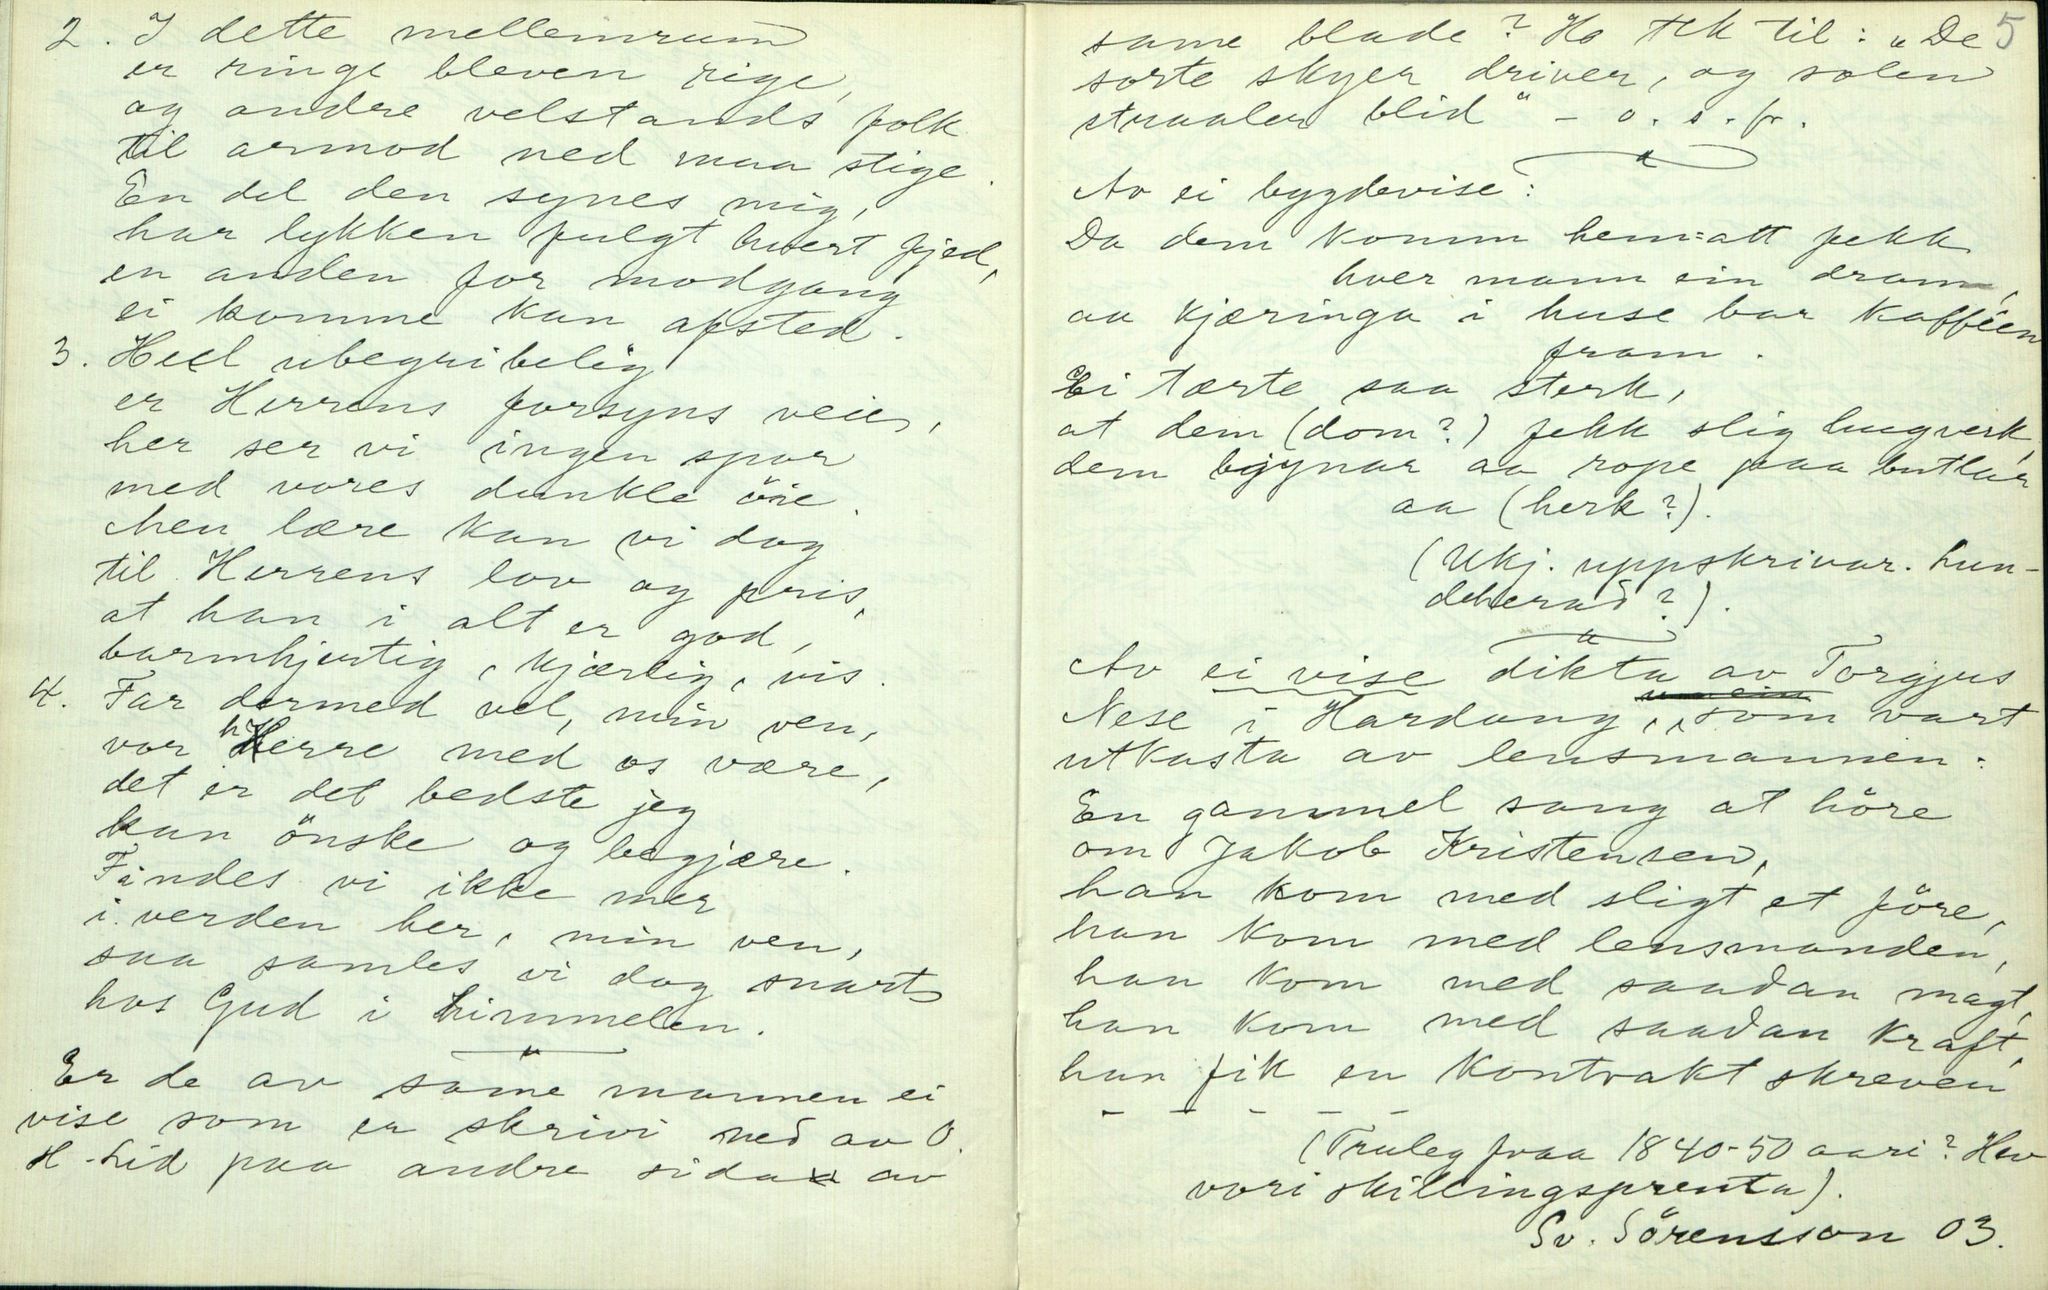 2. I dette mellemrum
er ringe bleven rige,
og andre velstands folk
til armod ned maa stige.
En del den synes mig,
har lykken fulgt hvert fjed,
en anden for modgang
ei komme kan afsted.
3. Heel ubegribelig
er Herrens forsyns veie,
her ser vi ingen spor
med vores dunkle öie.
Men lære kan vi dog
til Herrens lov og pris,
at han i alt er god,
barmhjertig, kjærlig, vis.
4. Far dermed vel, min ven,
vor herre med os være,
det er det bedste jeg
kan önske og begjære.
Findes vi ikke mer
i verden her, min ven,
saa samles vi dog snart
hos Gud i himmelen.
Er de av same mannen ei
vise som er skrivi ned av O.
H-Lid paa andre sida av
5
same blade? Ho tek til: "De
sorte skyer driver, og solen
straaler blid" - o. s. fr.
Av ei bygdevise:
Da dem komm hem=att fekk
hver mann ein dram,
aa kjæringa i huse bar kafféen
fram.
Ei tærte saa sterk,
at dem (dom?) fekk slig hugverk,
dem byynar aa rope paa butlar
aa (herk?).
(Ukj. uppskrivar. Lun-
deherad?).
Av ei vise dikta av Torgjus
Nese i Hardang, som vart
utkasta av lensmannen:
En gammel sang at höre
om Jakob Kristensen,
han kom med sligt et före,
han kom med lensmanden,
han kom med saadan magt,
han kom med saadan kraft,
han fik en kontrakt skreven
- - - - -
(Truleg fraa 1840-50 aari? Hev
vori skillingsprenta).
Sv. Sörensson 03.